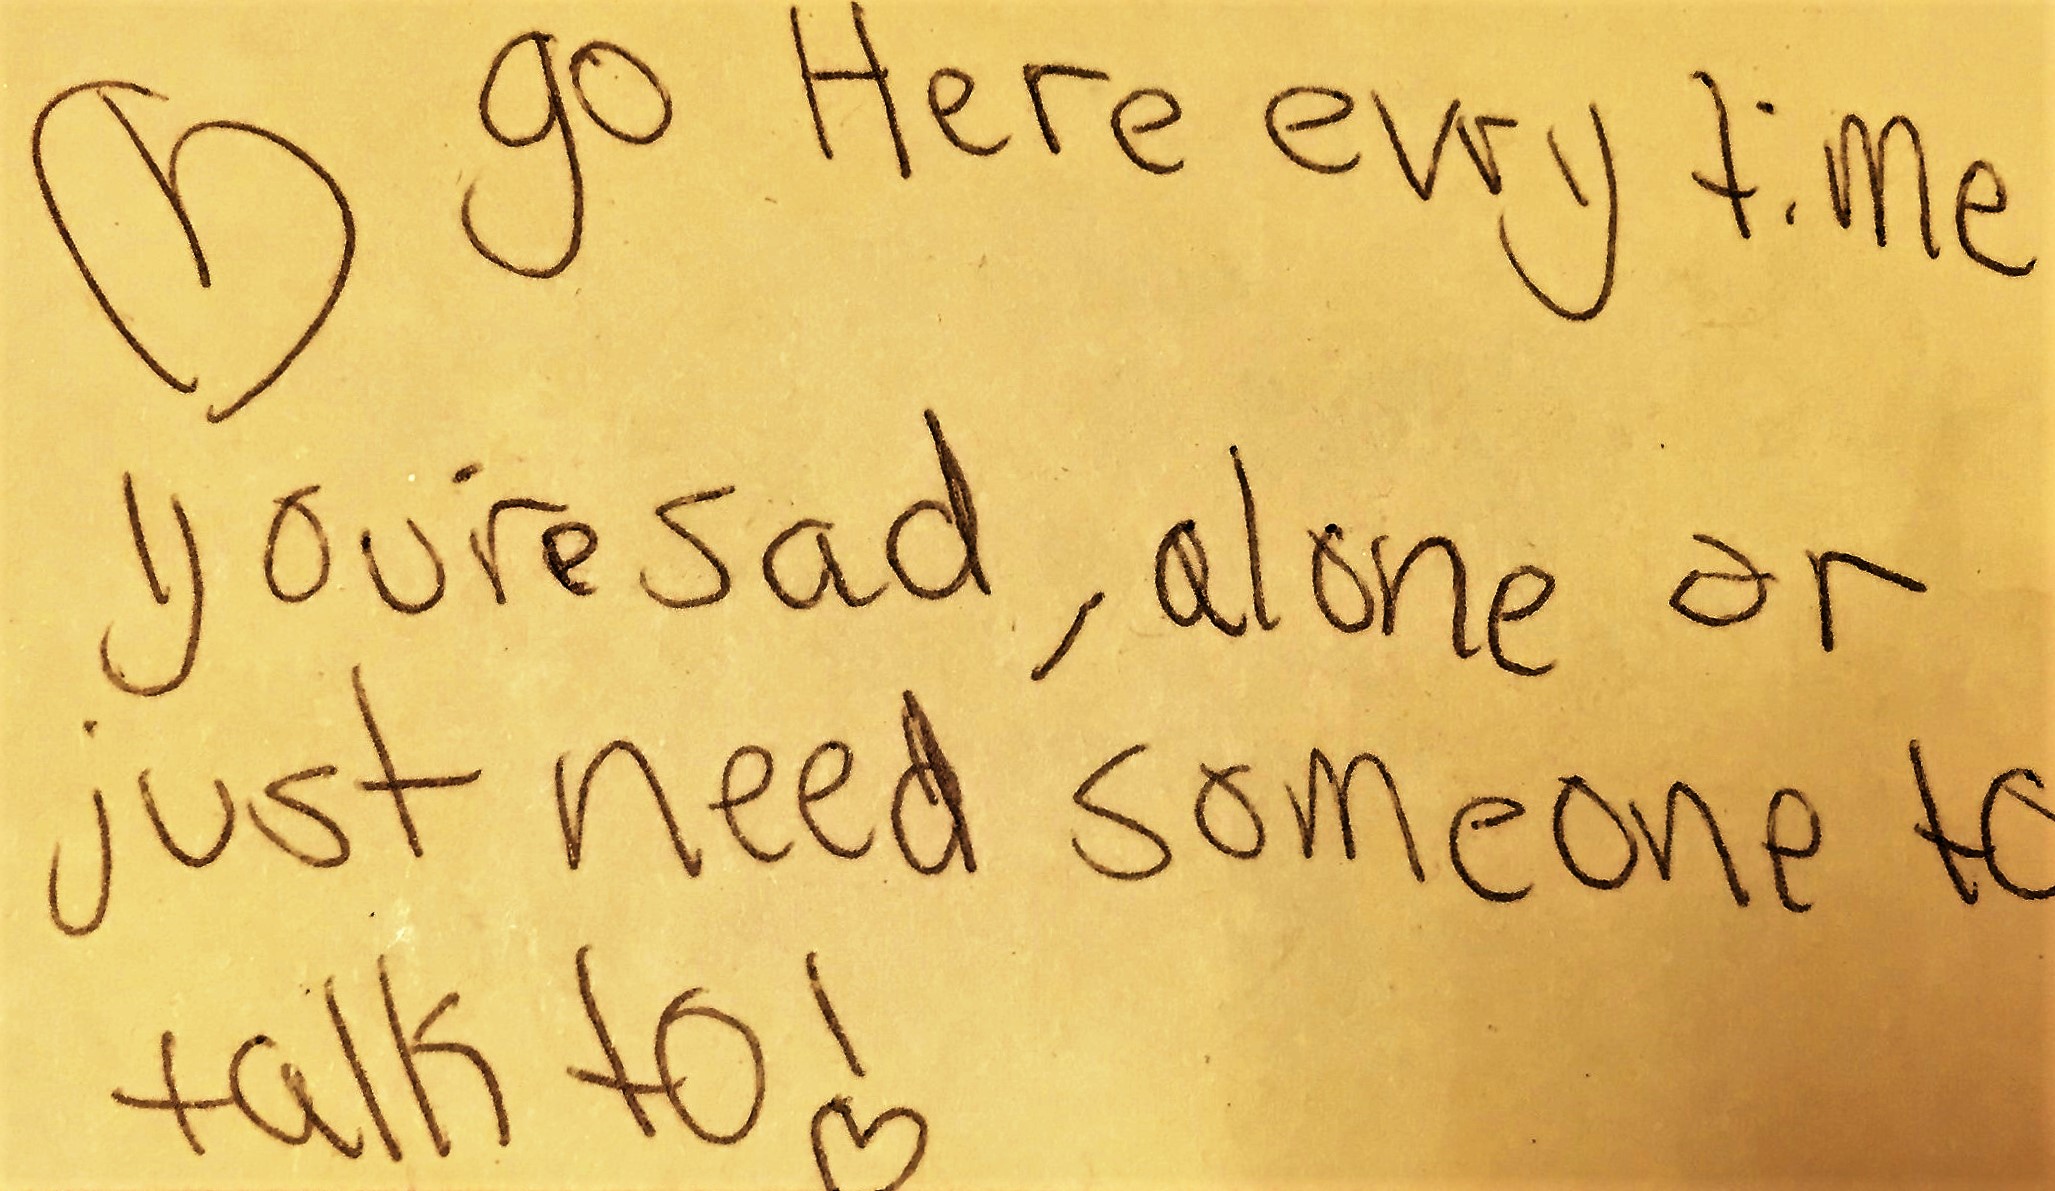 go Here evry time
you're sad, alone or
just need someone to
talk to!